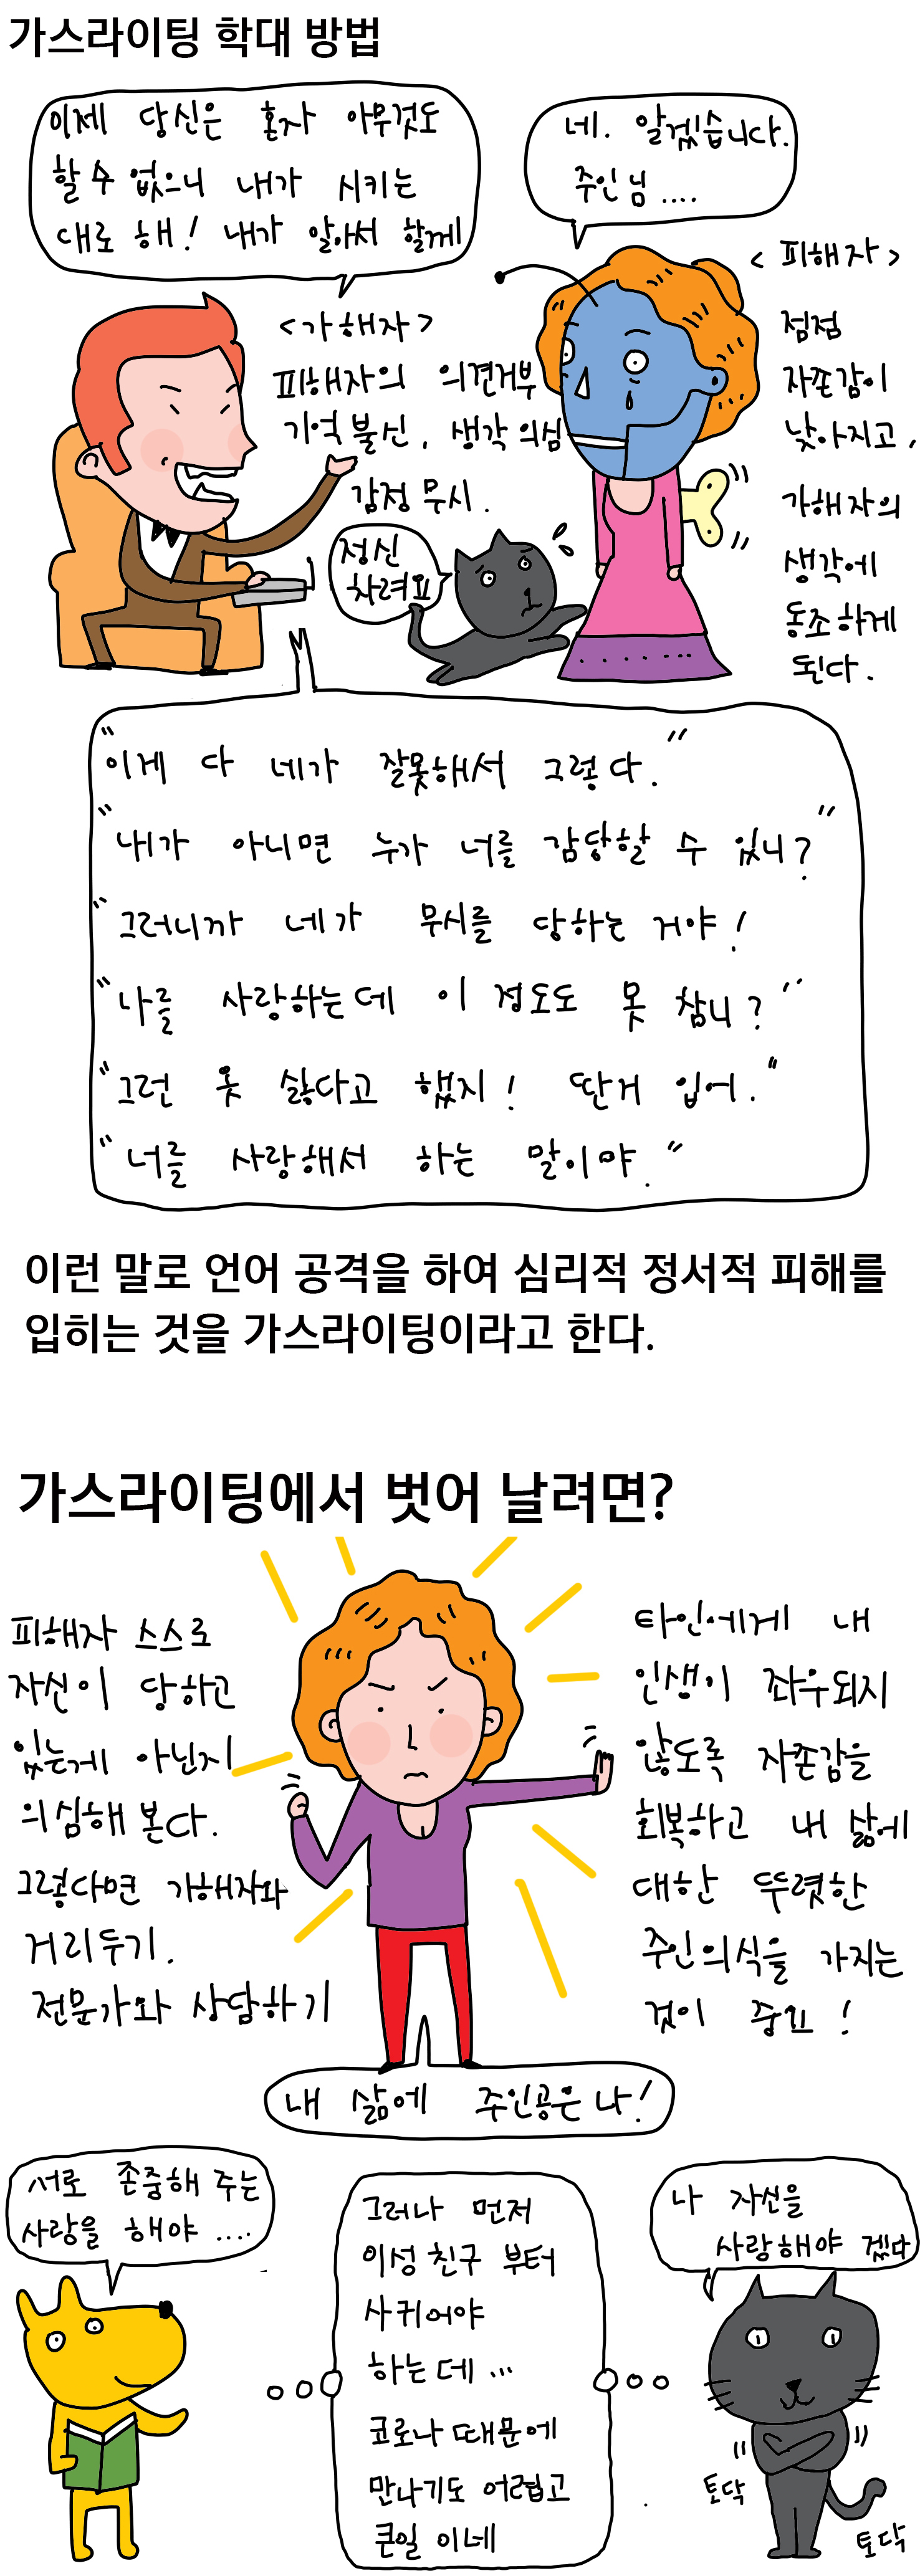 가스라이팅 학대 방법
이제 당신은 혼자 아무것도
할 수 없으니 내가 시키는
대로 해! 내가 알아서 할께
네. 알겠습니다.
주인님....
<가해자>
피해자의 의견거부
기억불신, 생각의심
감정무시.
<피해자>
점점
자존감이
낮아지고,
가해자의
생각에
동조하게
된다.
정신
차려요
"이게 다 네가 잘못해서 그렇다."
"내가 아니면 누가 너를 감당할 수 있니?"
"그러니까 네가 무시를 당하는 거야!
"나를 사랑하는데 이 정도도 못 참니?"
"그런 옷 싫다고 했지! 딴거 입어."
"너를 사랑해서 하는 말이야."
이런 말로 언어 공격을 하여 심리적 정서적 피해를
입히는 것을 가스라이팅이라고 한다.
가스라이팅에서 벗어 날려면?
피해자 스스로
자신이 당하고
있는게 아닌지
의심해 본다.
그렇다면 가해자와
거리두기.
전문가와 상담하기
타인에게 내
인생이 좌우되지
않도록 자존감을
회복하고 내 삶에
대한 뚜렷한
주인의식을 가지는
것이 중요!
내 삶에 주인공은 나!
서로 존중해 주는
사랑을 해야....
그러나 먼저
이성 친구 부터
사귀어야
하는데...
코로나 때문에
만나기도 어렵고
큰일 이네
나 자신을
사랑해야 겠다
토닥
토닥